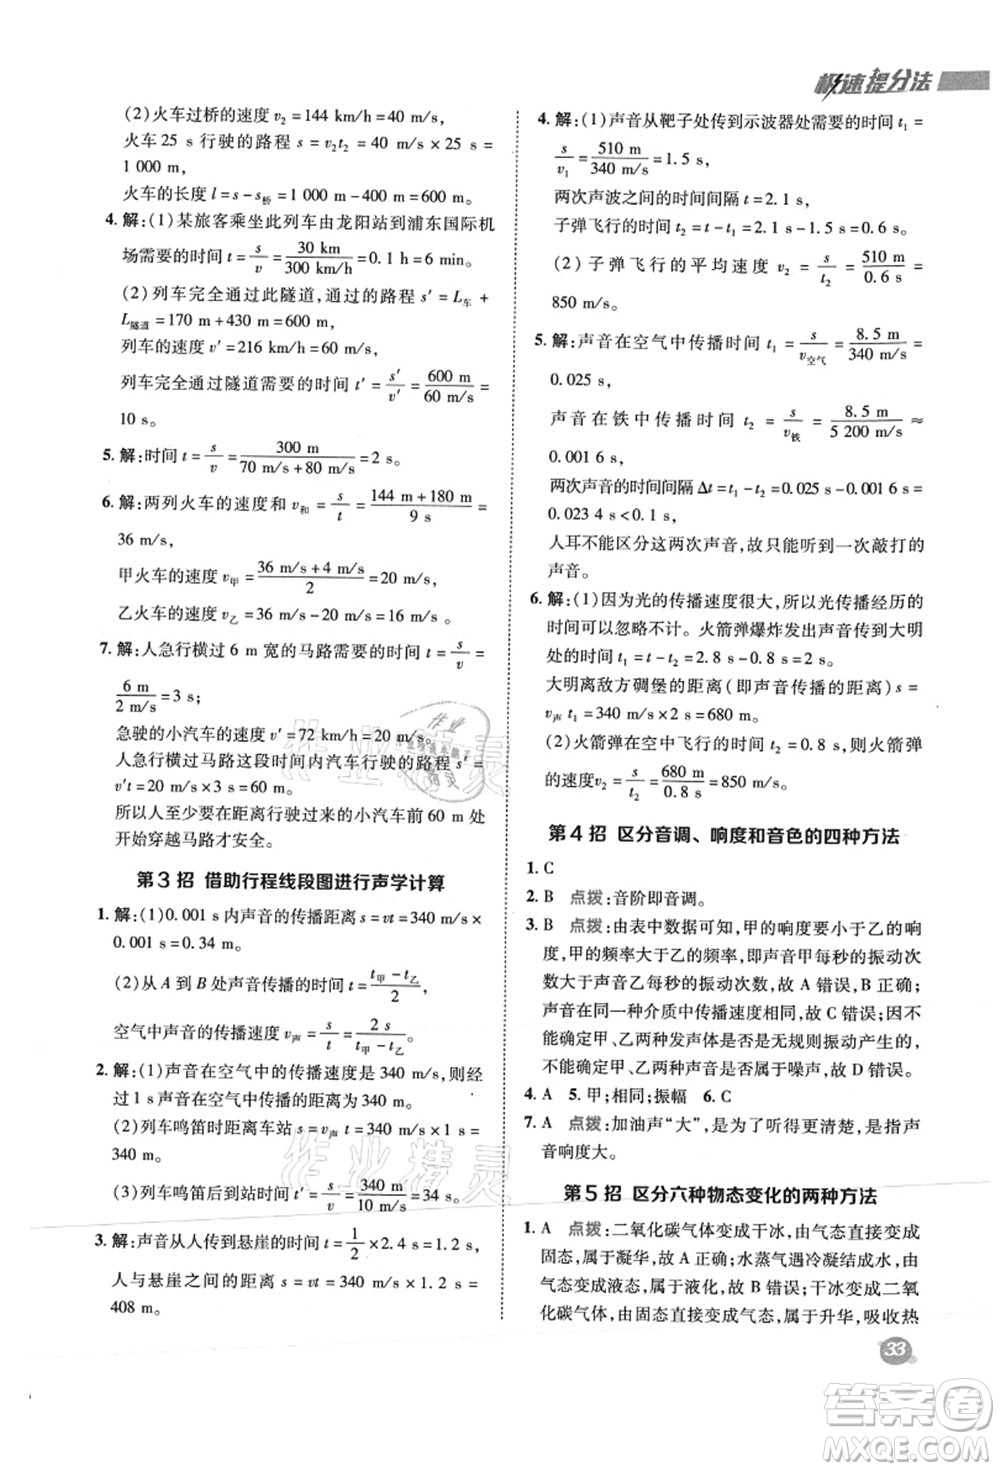 极速提分法
(2)火车过桥的速度 v₂＝144 km/h＝40 m/s,
火车 25 s 行驶的路程 s＝v₂t₂＝40 m/s×25 s＝
1 000 m,
火车的长度 l＝s－s桥＝1 000 m－400 m＝600 m。
4. 解:(1)某旅客乘坐此列车由龙阳站到浦东国际机
场需要的时间 t＝s/v＝30 km/300 km/h＝0.1 h＝6 min。
(2)列车完全通过此隧道,通过的路程 s′＝L车＋
L隧道＝170 m＋430 m＝600 m,
列车的速度 v′＝216 km/h＝60 m/s,
列车完全通过隧道需要的时间 t′＝s′/v′＝600 m/60 m/s＝
10 s。
5. 解:时间 t＝s/v＝300 m/70 m/s＋80 m/s＝2 s。
6. 解:两列火车的速度和 v和＝s/t＝144 m＋180 m/9 s＝
36 m/s,
甲火车的速度 v甲＝36 m/s＋4 m/s/2＝20 m/s,
乙火车的速度 v乙＝36 m/s－20 m/s＝16 m/s。
7. 解:人急行横过 6 m 宽的马路需要的时间 t＝s/v＝
6 m/2 m/s＝3 s;
急驶的小汽车的速度 v′＝72 km/h＝20 m/s,
人急行横过马路这段时间内汽车行驶的路程 s′＝
v′t＝20 m/s×3 s＝60 m。
所以人至少应在距离行驶过来的小汽车前 60 m 处
开始穿越马路才安全。
第3招 借助行程线段图进行声学计算
1. 解:(1)0.001 s内声音的传播距离 s＝vt＝340 m/s×
0.001 s＝0.34 m。
(2)从 A 到 B 处声音传播的时间 t＝t甲－t乙/2,
空气中声音的传播速度 v声＝s/t＝2s/t甲－t乙。
2. 解:(1)声音在空气中的传播速度是 340 m/s,则经
过1 s声音在空气中传播的距离为 340 m。
(2)列车鸣笛时距离车站 s＝v声t＝340 m/s×1 s＝
340 m。
(3)列车鸣笛后到站时间 t′＝s/v＝340 m/10 m/s＝34 s。
3. 解:声音从人传到悬崖的时间 t＝1/2×2.4 s＝1.2 s,
人与悬崖之间的距离 s＝vt＝340 m/s×1.2 s＝
408 m。
4. 解:(1)声音从靶子处传到示波器处需要的时间 t₁＝
s/v₁＝510 m/340 m/s＝1.5 s,
两次声波之间的时间间隔 t＝2.1 s,
子弹飞行的时间 t₂＝t－t₁＝2.1 s－1.5 s＝0.6 s。
(2)子弹飞行的平均速度 v₂＝s/t₂＝510 m/0.6 s＝
850 m/s。
5. 解:声音在空气中传播时间 t₁＝s/v空气＝8.5 m/340 m/s＝
0.025 s,
声音在铁中传播时间 t₂＝s/v铁＝8.5 m/5 200 m/s≈
0.001 6 s,
两次声音的时间间隔 Δt＝t₁－t₂＝0.025 s－0.001 6 s＝
0.023 4 s＜0.1 s,
人耳不能区分这两次声音,故只能听到一次敲打的
声音。
6. 解:(1)因为光的传播速度很大,所以光传播经历的
时间可以忽略不计。火箭弹爆炸发出声音传到大明
处的时间 t₁＝t－t₂＝2.8 s－0.8 s＝2 s,
大明离敌方碉堡的距离(即声音传播的距离) s＝
v声t₁＝340 m/s×2 s＝680 m。
(2)火箭弹在空中飞行的时间 t₂＝0.8 s,所以火箭弹
的速度v₂＝s/t₂＝680 m/0.8 s＝850 m/s。
第4招 区分音调、响度和音色的四种方法
1. C
2. B 点拨:音阶即音调。
3. B 点拨:由表中数据可知,甲的响度要小于乙的响
度,甲的频率大于乙的频率,即声音甲每秒的振动次
数大于声音乙每秒的振动次数,故 A 错误,B 正确;
声音在同一种介质中传播速度相同,故 C 错误;只
知道频率高低和响度大小不能判断是否是乐音和噪
声,也不知甲、乙两种发声体是否是规则振动产生的,
所以不能判断甲、乙两种声音是否属于噪声,故 D 错误。
4. A 5. 甲;相同;振幅 6. C
7. A 点拨:加油声“大”,是为了听得更清楚,是指声
音响度大。
第5招 区分六种物态变化的两种方法
1. A 点拨:二氧化碳气体变成干冰,由气态直接变成
固态,属于凝华,故 A 正确;水蒸气遇冷凝结成水,由
气态变成液态,属于液化,故 B 错误;干冰变成二氧
化碳气体,由固态直接变成气态,属于升华,吸收热
33
作业精灵
作业精灵
答案圈
MXQE.COM